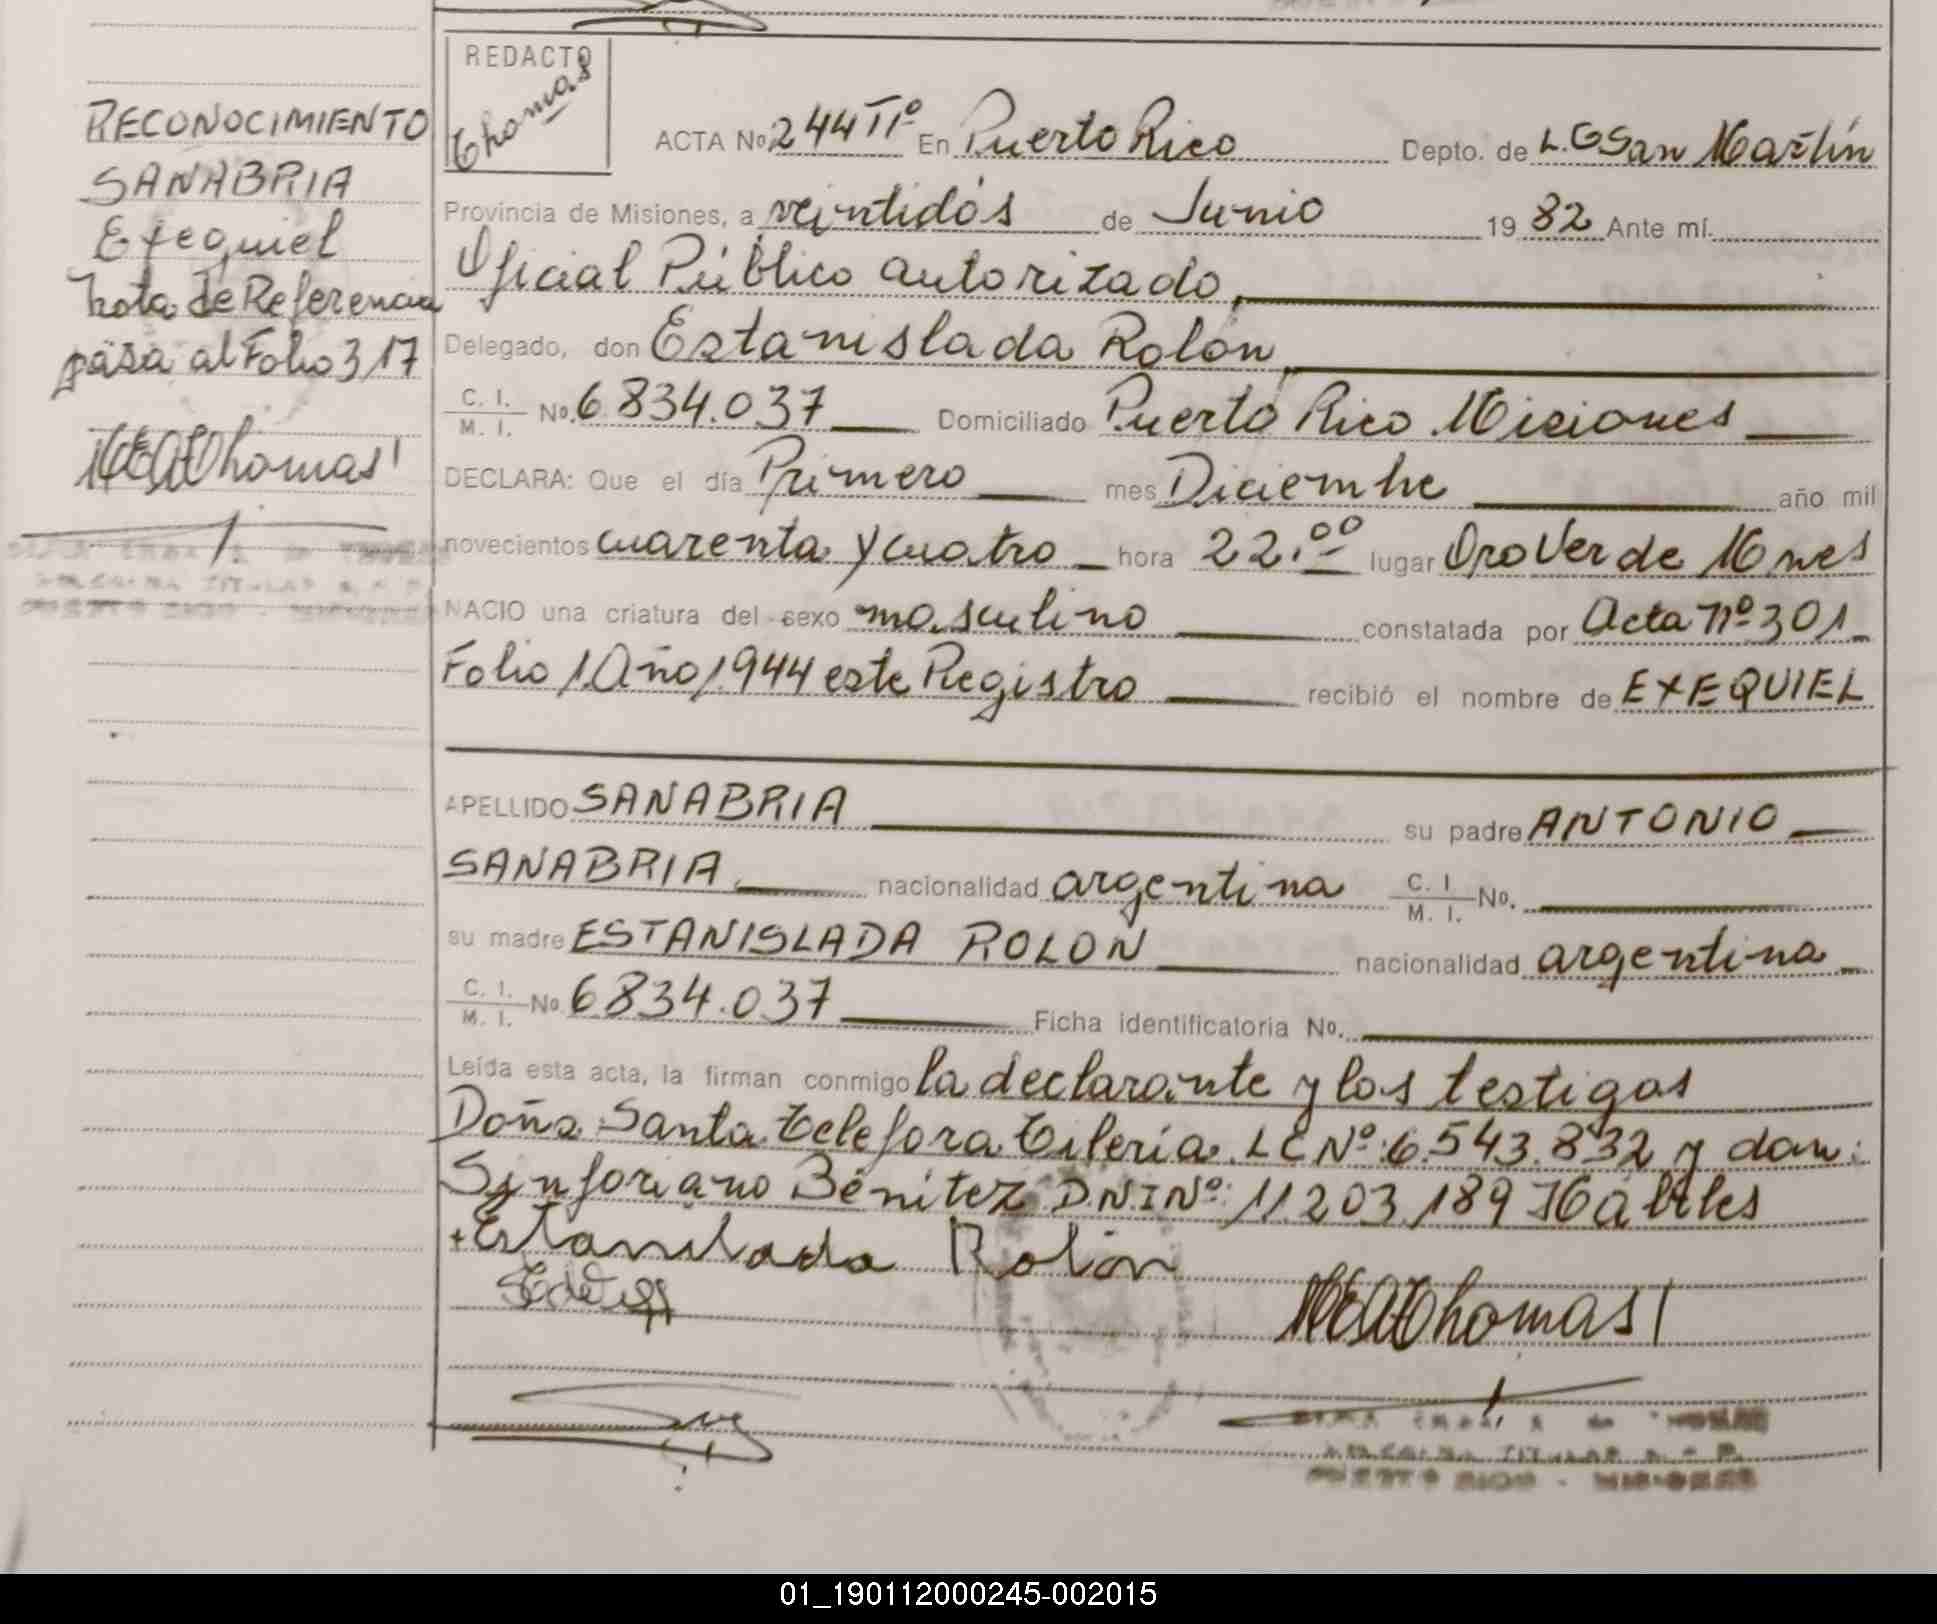 RECONOCIMIENTO
SANABRIA
Exequiel
Nota de Referencia
pasa al Folio 317
REDACTO
Thomas
ACTA No. 244 Tº En Puerto Rico Depto. de L.G San Martín
Provincia de Misiones, a veintidós de Junio 1982 Ante mí.
Oficial Público autorizado,
Delegado, don Estanislada Rolón
C. I. M. I. No. 6.834.037 Domiciliado Puerto Rico Misiones
DECLARA: Que el día Primero mes Diciembre año mil
novecientos cuarenta y cuatro hora 22.00 lugar Oro Verde Mnes
NACIO una criatura del sexo masculino constatada por Acta nº 301
Folio 1 Año 1944 este Registro recibió el nombre de EXEQUIEL
APELLIDO SANABRIA su padre ANTONIO
SANABRIA nacionalidad argentina C. I. M. I. No.
su madre ESTANISLADA ROLON nacionalidad argentina
C. I. M. I. No. 6834.037 Ficha identificatoria No.
Leída esta acta, la firman conmigo la declarante y los testigos
Doña Santa Telefora Tileria LC Nº: 6.543.832 y don:
Sinforiano Bénitez D.N.I Nº: 11.203.189 Hábiles
Estanislada Rolón
Thomas
PUERTO RICO - MISIONES
01_190112000245-002015